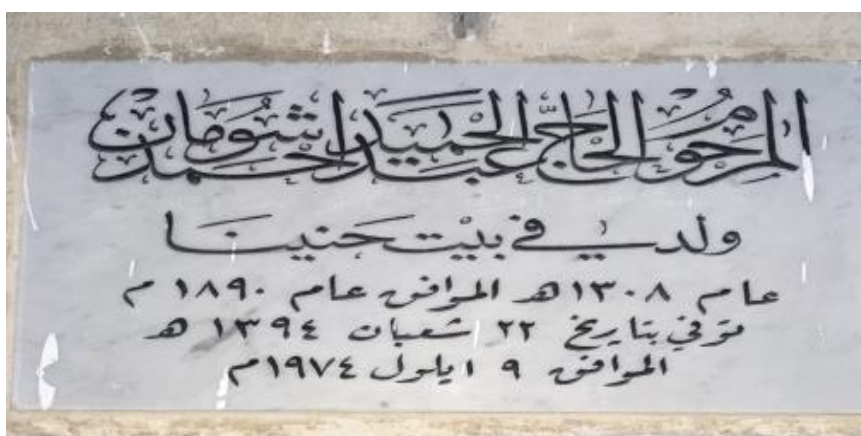 المرحوم الحاج عبد الحميد احمد شومان
ولد في بيت حنينا
عام ١٣٠٨ هـ الموافق عام ١٨٩٠ م
توفي بتاريخ ٢٢ شعبان ١٣٩٤ هـ
الموافق ٩ ايلول ١٩٧٤م